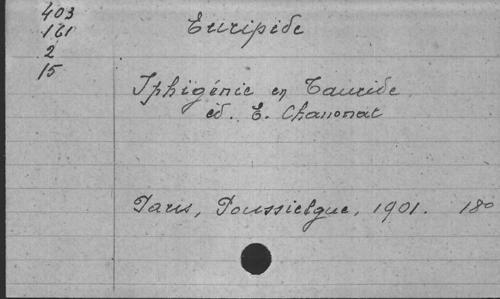 403
161
2
15
Euripide
Iphigénie en Tauride
éd. E. Chanonat
Paris, Poussielgue, 1901. 18º